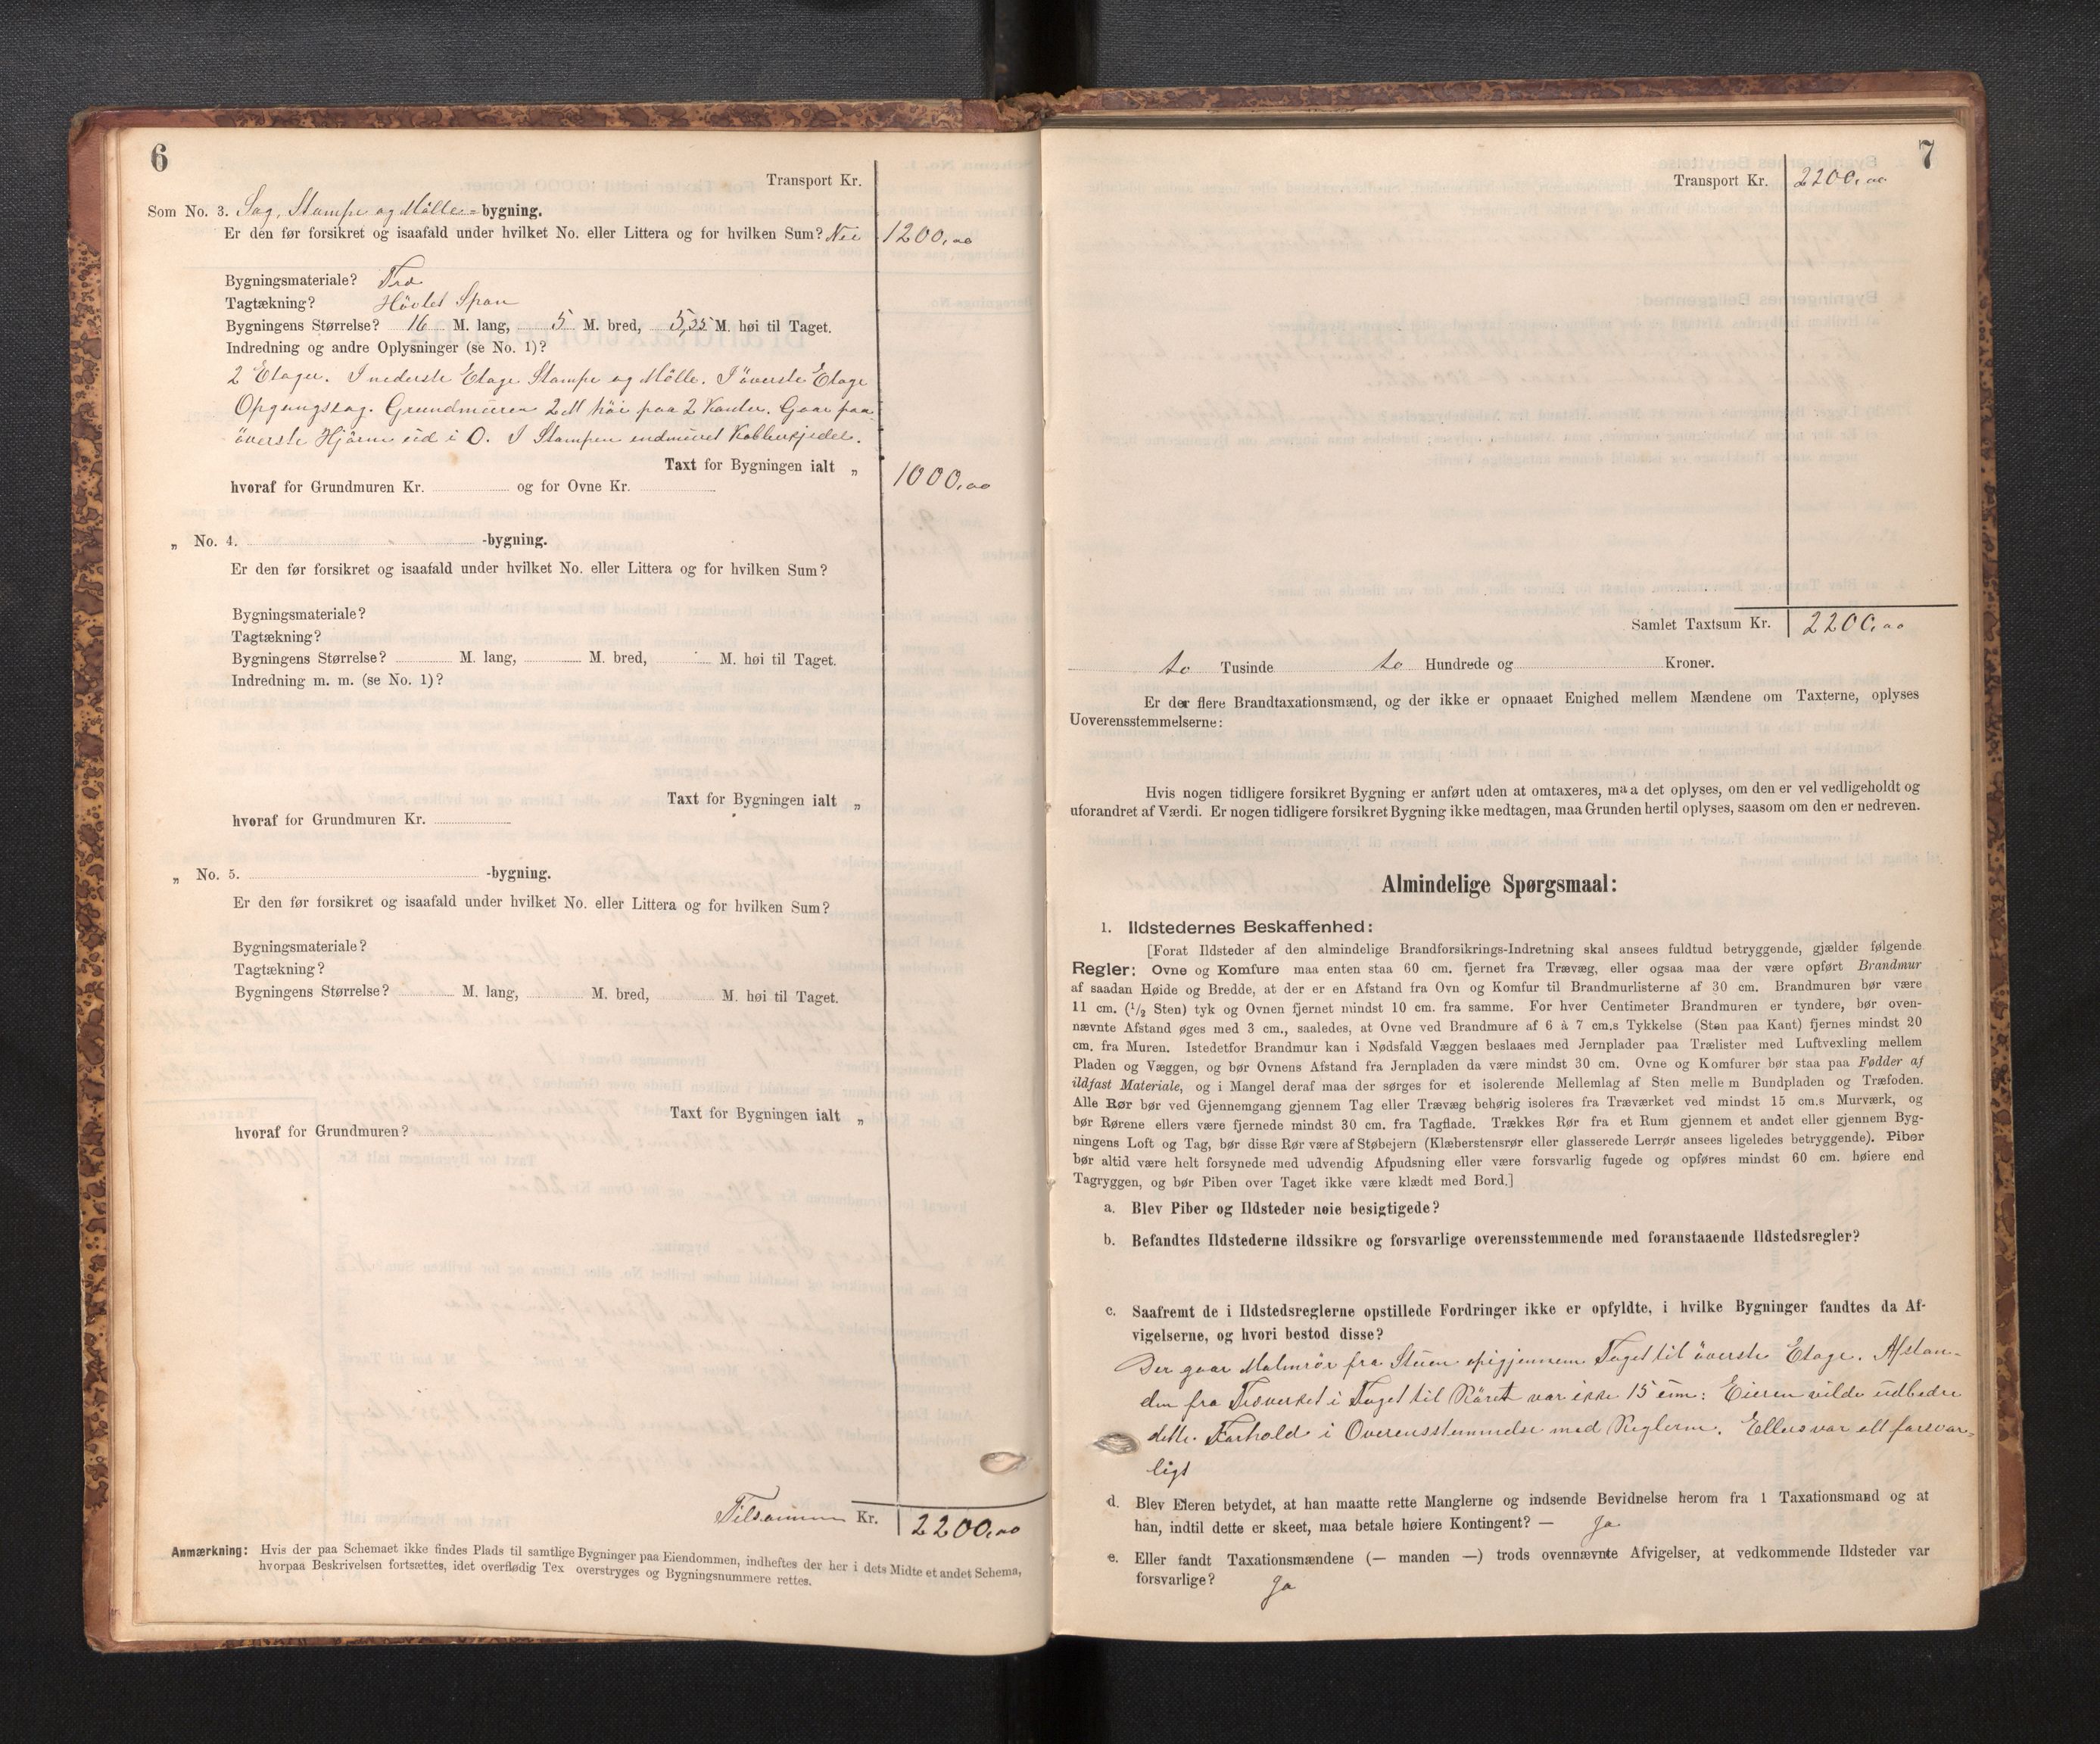 6
Transport Kr.
Som No. 3. Sag, Stampe og Mølle-bygning.
Er den før forsikret og isaafald under hvilket No. eller Littera og for hvilken Sum? Nei 1200,00
Bygningsmateriale? Træ
Tagtækning? Høvlet Spon
Bygningens Størrelse? 16 M. lang, 5 M. bred, 5,35 M. høi til Taget.
Indredning og andre Oplysninger (se No. 1)?
2 Etager. I nederste Etage Stampe og Mølle. I øverste Etage
Opgangssag. Grundmuren 2 M høi paa 2 Kanter. Gaar paa
øverste Hjørne ud i 0. I Stampen indmuret Kobberkjedel.
Taxt for Bygningen ialt „ 1000,00
hvoraf for Grundmuren Kr. og for Ovne Kr.
„ No. 4. -bygning.
Er den før forsikret og isaafald under hvilket No. eller Littera og for hvilken Sum?
Bygningsmateriale?
Tagtækning?
Bygningens Størrelse? M. lang, M. bred, M. høi til Taget.
Indredning m. m. (se No. 1)?
Taxt for Bygningen ialt „
hvoraf for Grundmuren Kr.
„ No. 5. -bygning.
Er den før forsikret og isaafald under hvilket No. eller Littera og for hvilken Sum?
Bygningsmateriale?
Tagtækning?
Bygningens Størrelse? M. lang, M. bred, M. høi til Taget.
Taxt for Bygningen ialt „
hvoraf for Grundmuren?
Tilsammen Kr. 2200,00
Anmærkning: Hvis der paa Schemaet ikke findes Plads til samtlige Bygninger paa Eiendommen, indheftes der her i dets Midte et andet Schema,
hvorpaa Beskrivelsen fortsættes, idet overflødig Tex overstryges og Bygningsnummere rettes.
7
Transport Kr. 2200,00
Samlet Taxtsum Kr. 2200,00
to Tusinde to Hundrede og Kroner.
Er der flere Brandtaxationsmænd, og der ikke er opnaaet Enighed mellem Mændene om Taxterne, oplyses
Uoverensstemmelserne:
Hvis nogen tidligere forsikret Bygning er anført uden at omtaxeres, maa det oplyses, om den er vel vedligeholdt og
uforandret af Værdi. Er nogen tidligere forsikret Bygning ikke medtagen, maa Grunden hertil oplyses, saasom om den er nedreven.
Almindelige Spørgsmaal:
1. Ildstedernes Beskaffenhed:
[Forat Ildsteder af den almindelige Brandforsikrings-Indretning skal ansees fuldtud betryggende, gjælder følgende
Regler: Ovne og Komfure maa enten staa 60 cm. fjernet fra Trævæg, eller ogsaa maa der være opført Brandmur
af saadan Høide og Bredde, at der er en Afstand fra Ovn og Komfur til Brandmurlisterne af 30 cm. Brandmuren bør være
11 cm. (1/2 Sten) tyk og Ovnen fjernet mindst 10 cm. fra samme. For hver Centimeter Brandmuren er tyndere, bør oven-
nævnte Afstand øges med 3 cm., saaledes, at Ovne ved Brandmure af 6 à 7 cm.s Tykkelse (Sten paa Kant) fjernes mindst 20
cm. fra Muren. Istedetfor Brandmur kan i Nødsfald Væggen beslaaes med Jernplader paa Trælister med Luftvexling mellem
Pladen og Væggen, og bør Ovnens Afstand fra Jernpladen da være mindst 30 cm. Ovne og Komfurer bør staa paa Fødder af
ildfast Materiale, og i Mangel deraf maa der sørges for et isolerende Mellemlag af Sten mellem Bundpladen og Træfoden.
Alle Rør bør ved Gjennemgang gjennem Tag eller Trævæg behørig isoleres fra Træværket ved mindst 15 cm.s Murværk, og
bør Rørene ellers være fjernede mindst 30 cm. fra Tagflade. Trækkes Rør fra et Rum gjennem et andet eller gjennem Byg-
ningens Loft og Tag, bør disse Rør være af Støbejern (Klæberstensrør eller glasserede Lerrør ansees ligeledes betryggende). Piber
bør altid være helt forsynede med udvendig Afpudsning eller være forsvarlig fugede og opføres mindst 60 cm. høiere end
Tagryggen, og bør Piben over Taget ikke være klædt med Bord.]
a. Blev Piber og Ildsteder nøie besigtigede?
b. Befandtes Ildstederne ildssikre og forsvarlige overensstemmende med foranstaaende Ildstedsregler?
c. Saafremt de i Ildstedsreglerne opstillede Fordringer ikke er opfyldte, i hvilke Bygninger fandtes da Af-
vigelserne, og hvori bestod disse?
Der gaar Malmrør fra Stuen opigjennem Taget til øverste Etage. Afstan-
den fra Træverket i Taget til Røret var ikke 15 cm: Eieren vilde udbedre
dette Forhold i Overensstemmelse med Reglerne. Ellers var alt forsvar-
ligt
d. Blev Eieren betydet, at han maatte rette Manglerne og indsende Bevidnelse herom fra 1 Taxationsmand og at
han, indtil dette er skeet, maa betale høiere Kontingent? — Ja
e. Eller fandt Taxationsmændene (— manden —) trods ovennævnte Afvigelser, at vedkommende Ildsteder var
forsvarlige? Ja